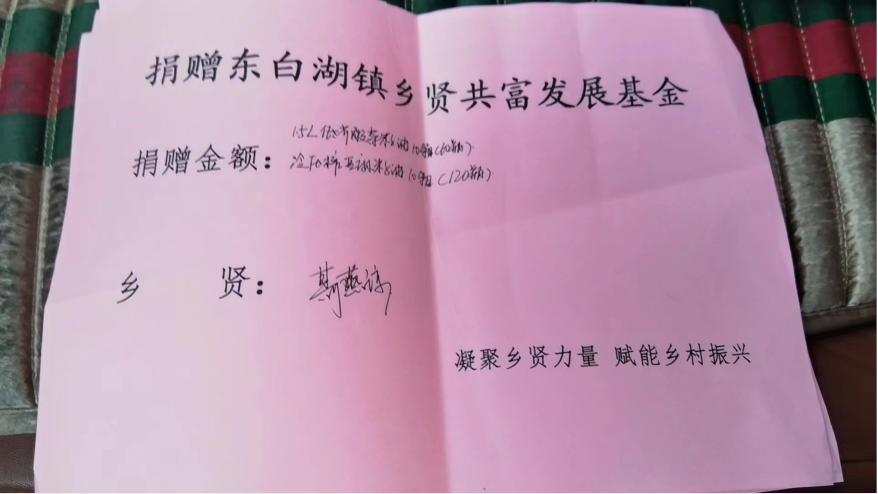 捐赠东白湖镇乡贤共富发展基金
捐赠金额：
1.5L 油10箱(60瓶)
冷 油10箱(120瓶)
乡 贤：
凝聚乡贤力量 赋能乡村振兴